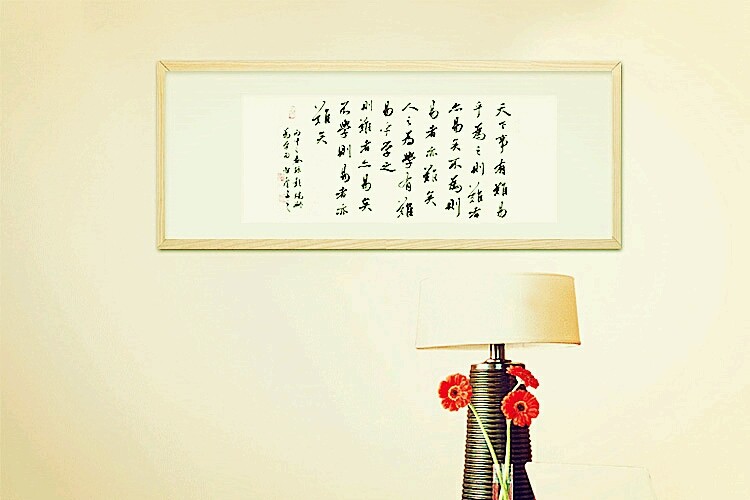 天下事有難易
乎為之則難者
亦易矣不為則
易者亦難矣
人之為學有難
易乎學之
則難者亦易矣
不學則易者亦
難矣